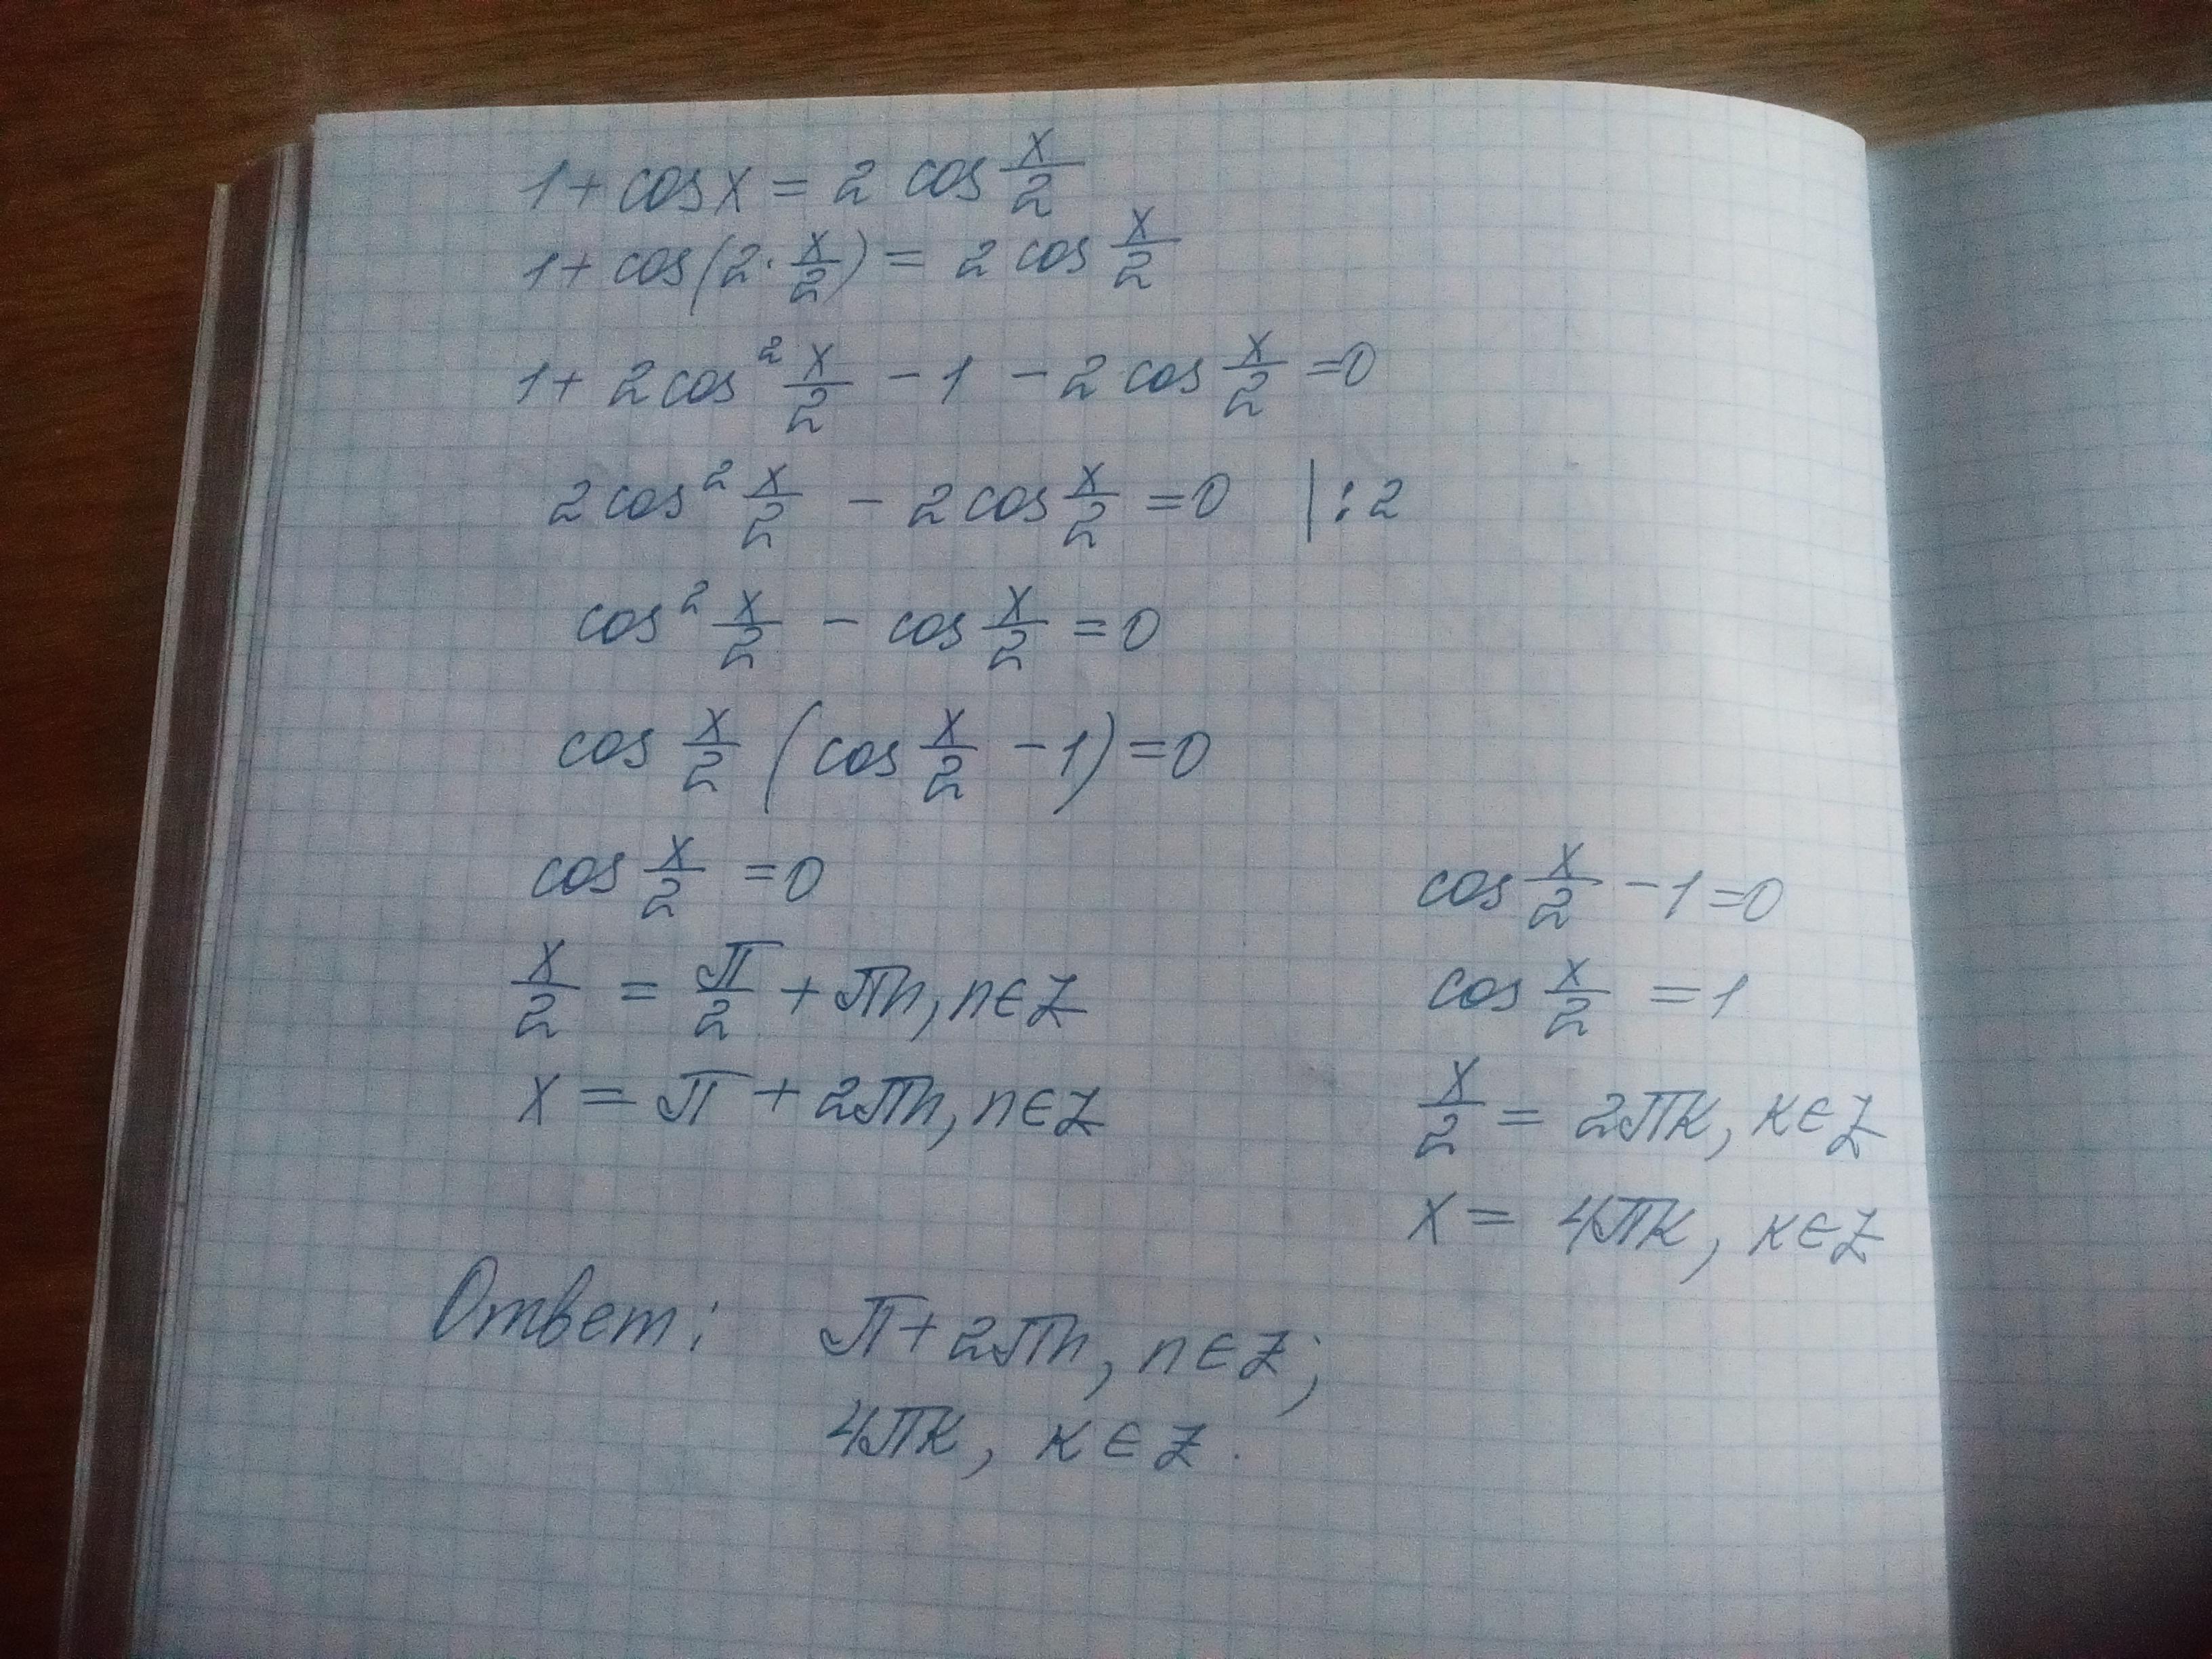 1 + cos x = 2 cos x/2
1 + cos(2 · x/2) = 2 cos x/2
1 + 2cos² x/2 − 1 − 2 cos x/2 = 0
2cos² x/2 − 2cos x/2 = 0 | : 2
cos² x/2 − cos x/2 = 0
cos x/2 (cos x/2 − 1) = 0
cos x/2 = 0
x/2 = π/2 + πn, n∈Z
x = π + 2πn, n∈Z
cos x/2 − 1 = 0
cos x/2 = 1
x/2 = 2πк, к∈Z
x = 4πк, к∈Z
Ответ: π + 2πn, n∈Z;
4πк, к∈Z.